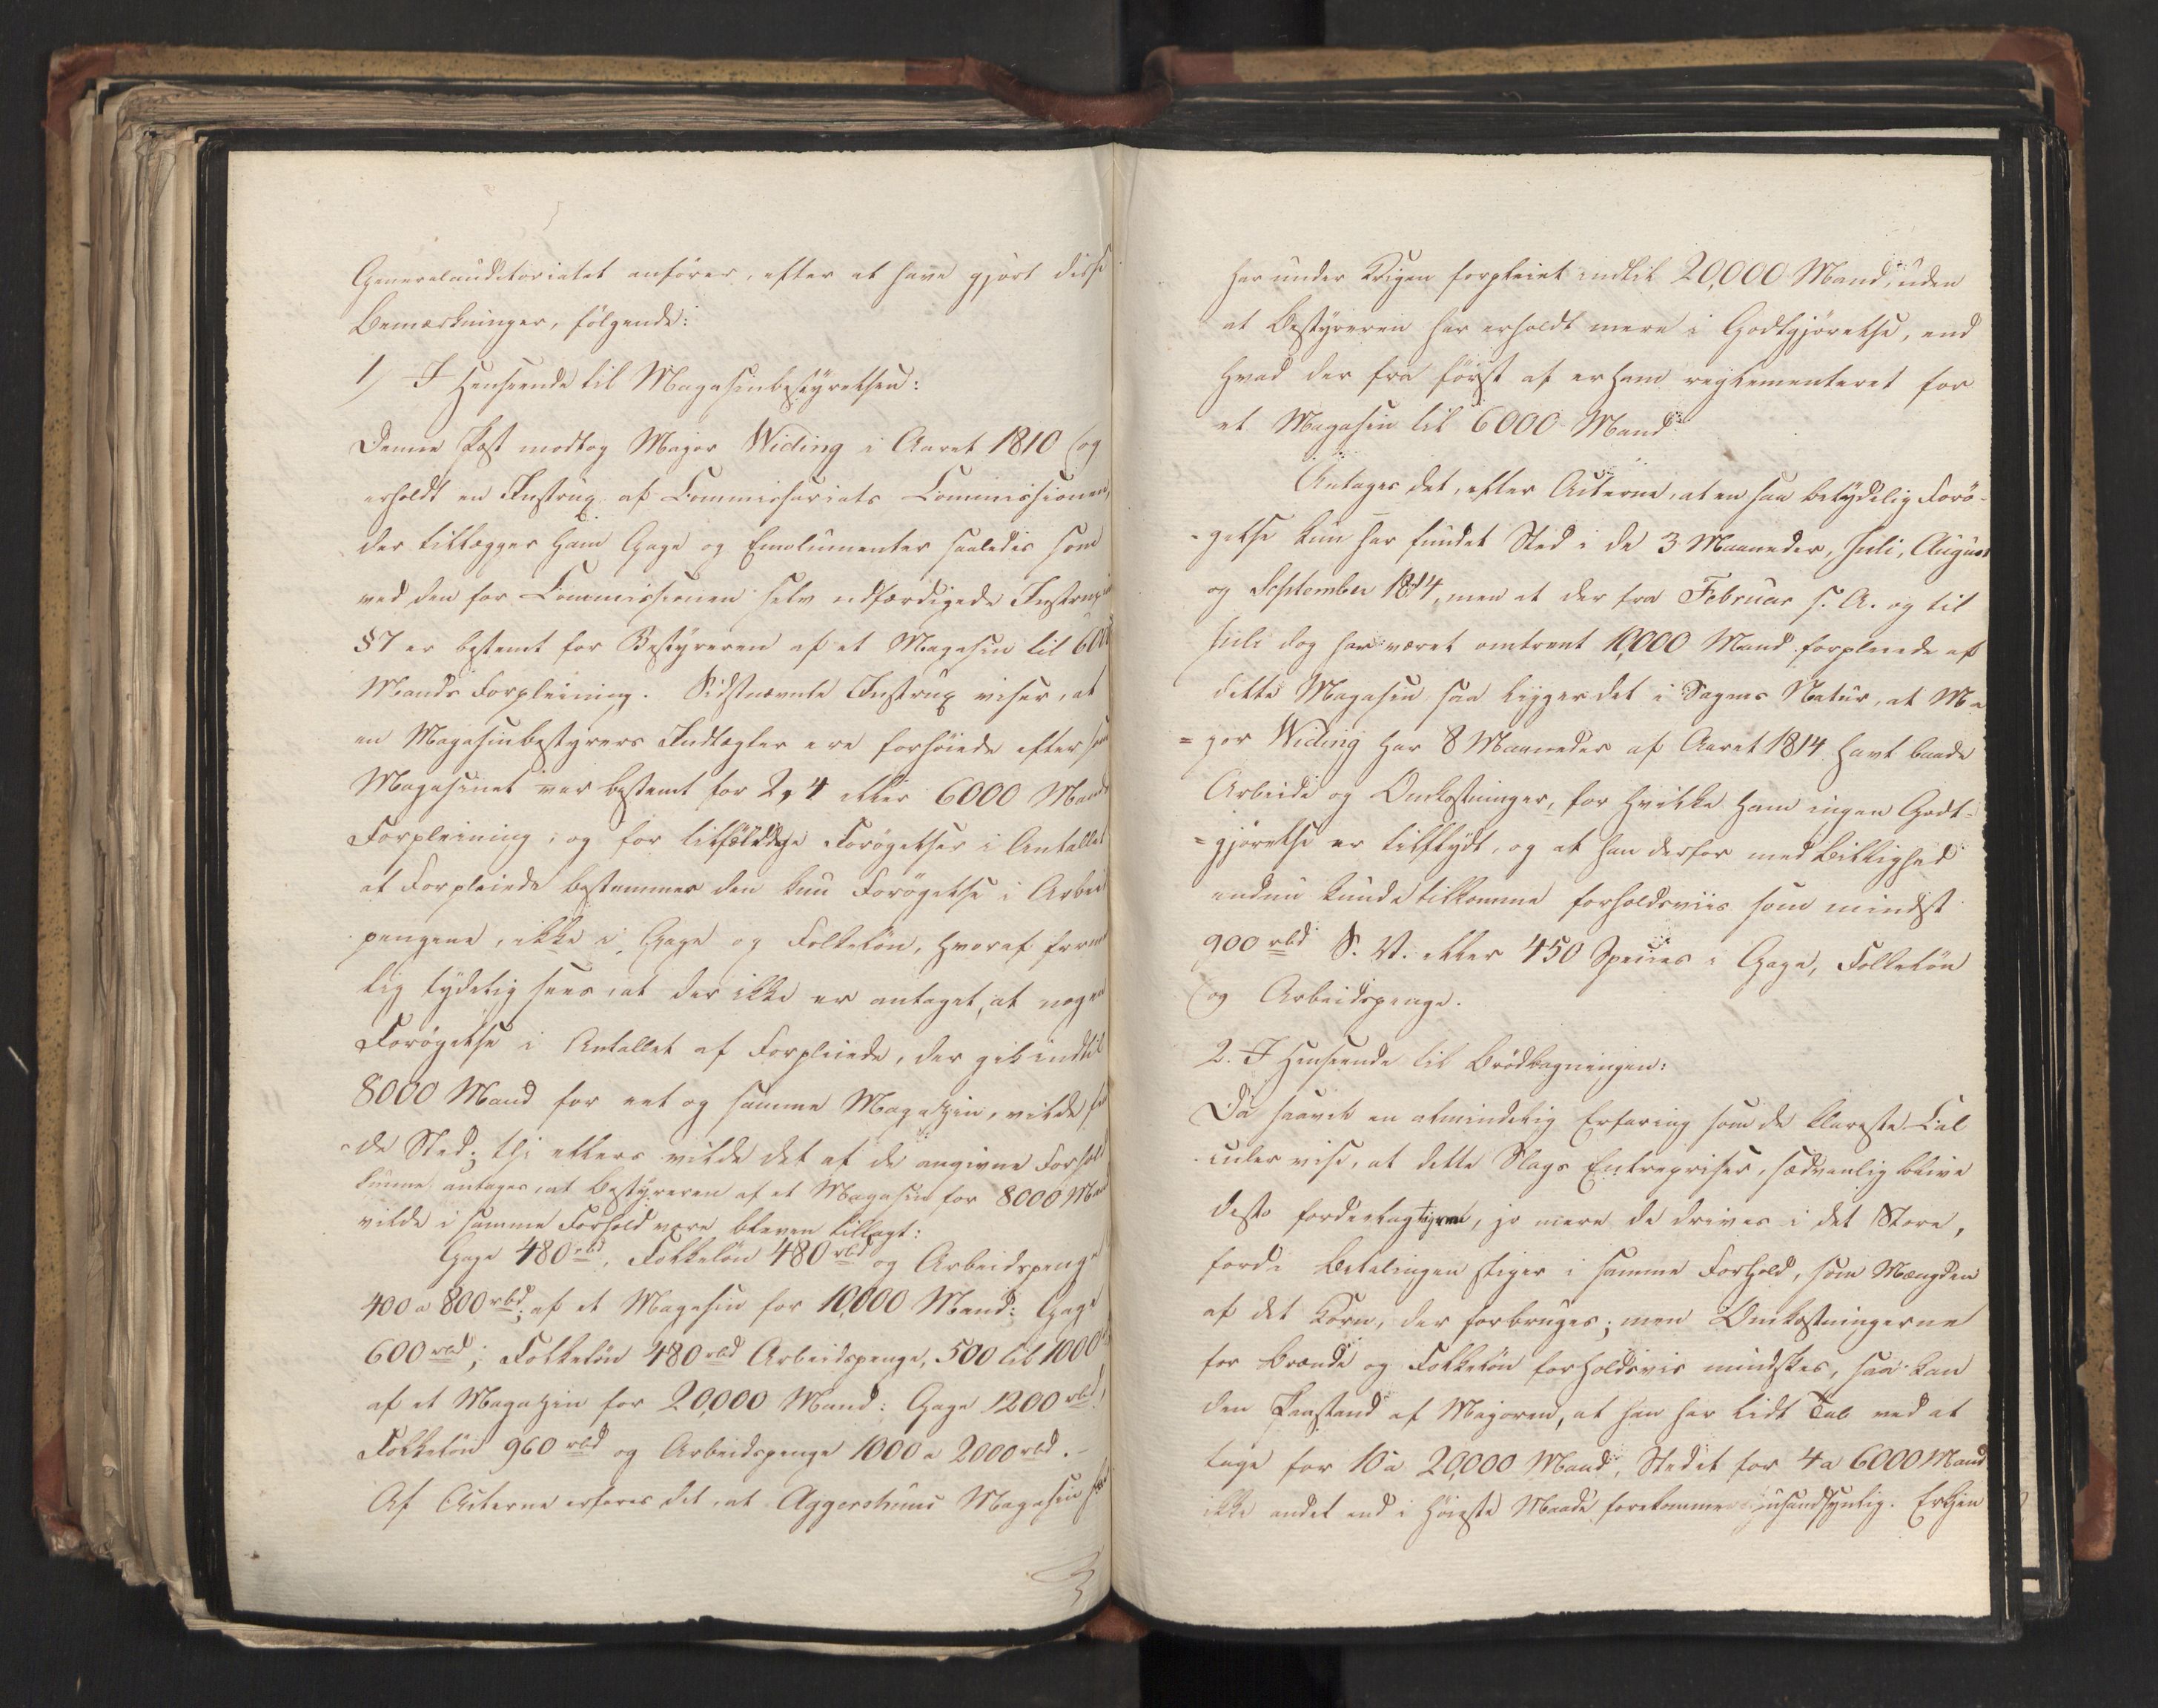 Generalauditoriatet anfører, efter at have gjort disse
Bemærkninger, følgende:
1) I Henseende til Magasinbestyrelsen:
Denne Post modtog Major Widing i Aaret 1810 (og
erholdt en Instrux af Commissariats Commissionen,
der tillægger ham Gage og Emolumenter saaledes som
ved den for Commissionen selv udfærdigede Instrux
§7 er bestemt for Bestyreren af et Magasin til 6000
Mands Forpleining. Sidstnævnte Instrux viser, at
en Magasinbestyrers Indtægter ere forhøiede efter som
Magasinet var bestemt for 2, 4 eller 6000 Mands
Forpleining; og for tilfældige Forøgelser i Antallet
af Forpleiede bestemmer den kun Forøgelse i Arbeids
pengene, ikke i Gage og Folkeløn, hvoraf frem
lig tydelig sees, at der ikke er antaget, at nogen
Forøgelse i Antallet af Forpleiede, der gik indtil
8000 Mand for eet og samme Magazin, vilde fin
de Sted; thi ellers vilde det af de angivne Forhold
kunne antages, at Bestyreren af et Magasin for 8000 Mand
vilde i samme Forhold være bleven tillagt:
Gage 480 rbd, Folkeløn 480 rbd og Arbeidspenge
400 a 800 rbd; af et Magasin for 10,000 Mand: Gage
600 rbd; Folkeløn 480 rbd Arbeidspenge, 500 til 1000
af et Magazin for 20,000 Mand: Gage 1200 rbd,
Folkeløn 960 rbd og Arbeidspenge 1000 a 2000 rbd.-
Af Acterne erfares det, at Aggershuus Magasin
har under Krigen forpleiet indtil 20,000 Mand, uden
at Bestyreren har erholdt mere i Godtgjørelse, end
hvad der fra først af er ham reglementeret for
et Magasin til 6000 Mand
Antages det, efter Acterne, at en saa betydelig Forø-
-gelse kun har fundet Sted i de 3 Maaneder, Juli, August
og September 1814, men at der fra Februar s. A. og til
Juli dog har været omtrent 10,000 Mand forpleiede af
dette Magasin saa ligger det i Sagens Natur, at Ma
=jor Widing har 8 Maaneder af Aaret 1814 havt baade
Arbeide og Omkostninger, for hvilke ham ingen Godt-
=gjørelse er tilflydt, og at han derfor med Billighed
endnu kunde tilkomme forholdsviis som mindst
900 rbd S. V. eller 450 Species i Gage, Folkeløn
og Arbeidspenge.
2. I Henseende til Brødbagningen:
Da saavel en almindelig Erfaring som de klareste Cal
culer vise, at dette Slags Entrepriser, sædvanlig blive
desto fordeelagtigere, jo mere de drives i det Store,
fordi Betalingen stiger i samme Forhold, som Mængden
af det Korn, der forbruges; men Omkostningerne
for Brænde og Folkeløn forholdsvis mindskes, saa kan
den Paastand af Majoren, at han har lidt Tab ved at
bage for 10 a 20,000 Mand, Stedet for 4 a 6000 Mand
ikke andet end i høieste Maade forekomme usandsynlig. Erhjen